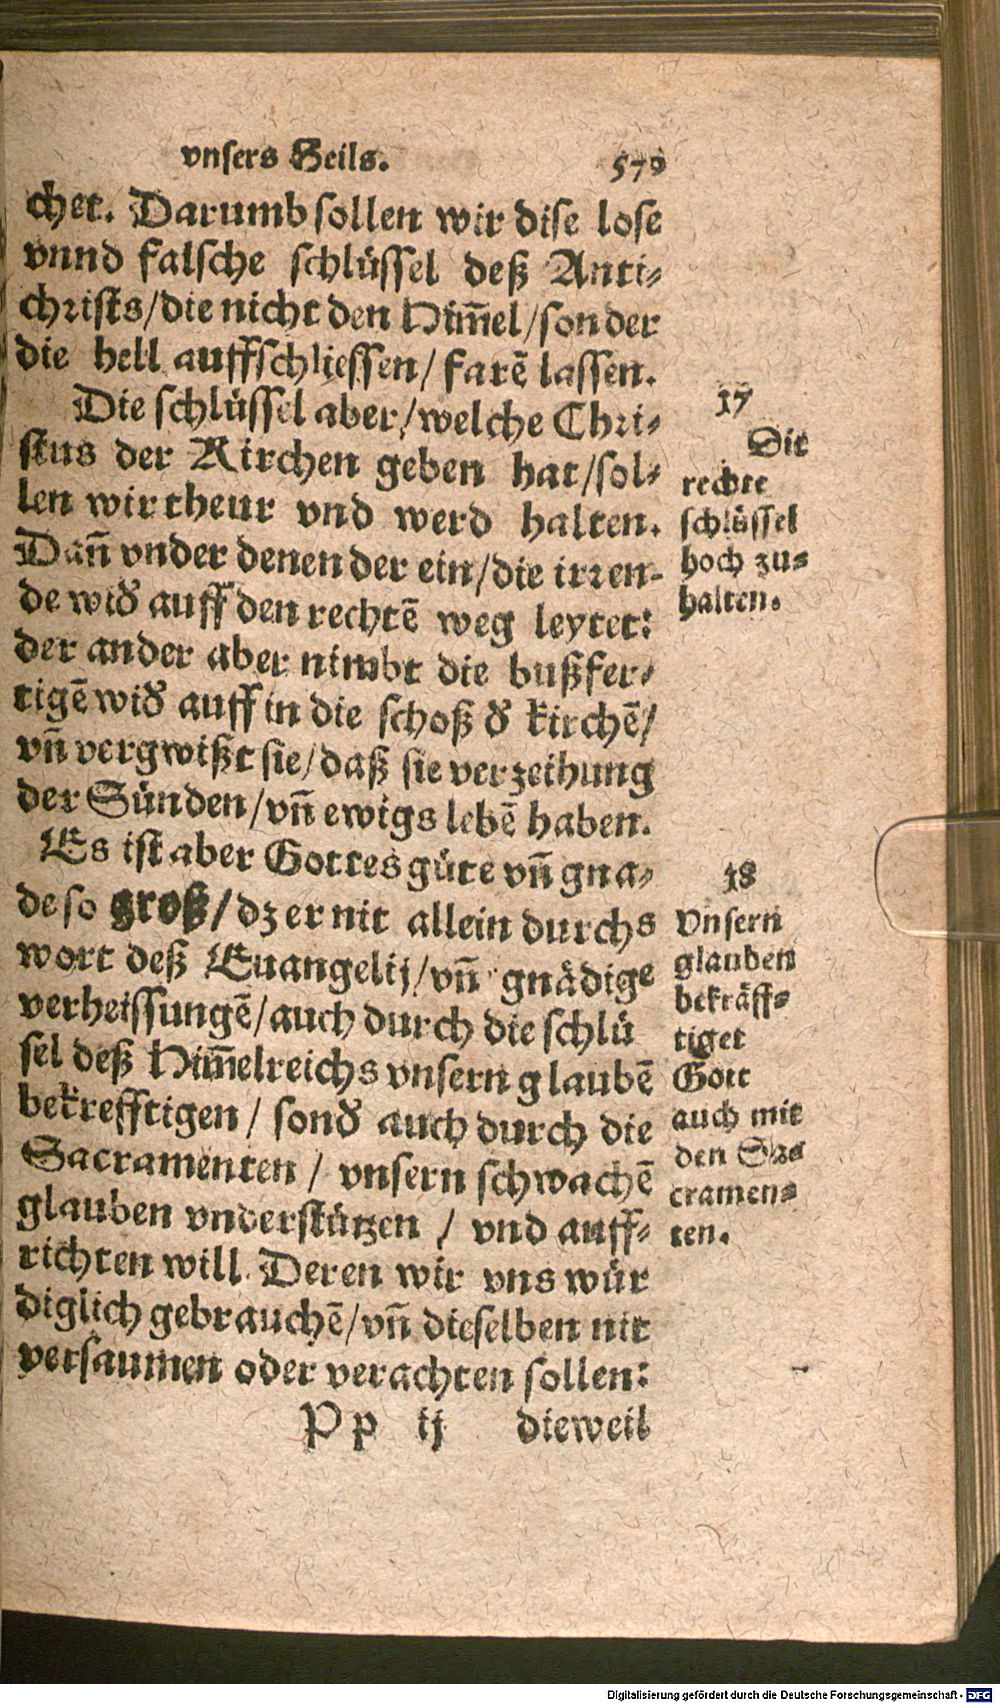 vnsers Heils. 579
chet. Darumb sollen wir dise lose
vnnd falsche schlüssel deß Anti-
christs/die nicht den Him̃el/sonder
die hell auffschliessen/farẽ lassen.
Die schlüssel aber/welche Chri-
stus der Kirchen geben hat/sol-
len wir theur vnd werd halten.
Dañ vnder denen der ein/die irren-
de wiď auff den rechtẽ weg leytet:
der ander aber nimbt die bußfer-
tigẽ wiď auff in die schoß ď kirchẽ/
vñ vergwißt sie/daß sie verzeihung
der Sünden/vñ ewigs lebẽ haben.
Es ist aber Gottes güte vñ gna-
de so groß/dz er nit allein durchs
wort deß Euangelij/vñ gnädige
verheissungẽ/auch durch die schlü
sel deß Him̃elreichs vnsern glaubẽ
bekrefftigen/sonď auch durch die
Sacramenten/vnsern schwachẽ
glauben vnderstützen/vnd auff-
richten will. Deren wir vns wür
diglich gebrauchẽ/vñ dieselben nit
versaumen oder verachten sollen:
Pp ij dieweil
17
Die
rechte
schlüssel
hoch zu-
halten.
18
Vnsern
glauben
bekräff-
tiget
Gott
auch mit
den Sa-
cramen-
ten.
Digitalisierung gefördert durch die Deutsche Forschungsgemeinschaft - DFG